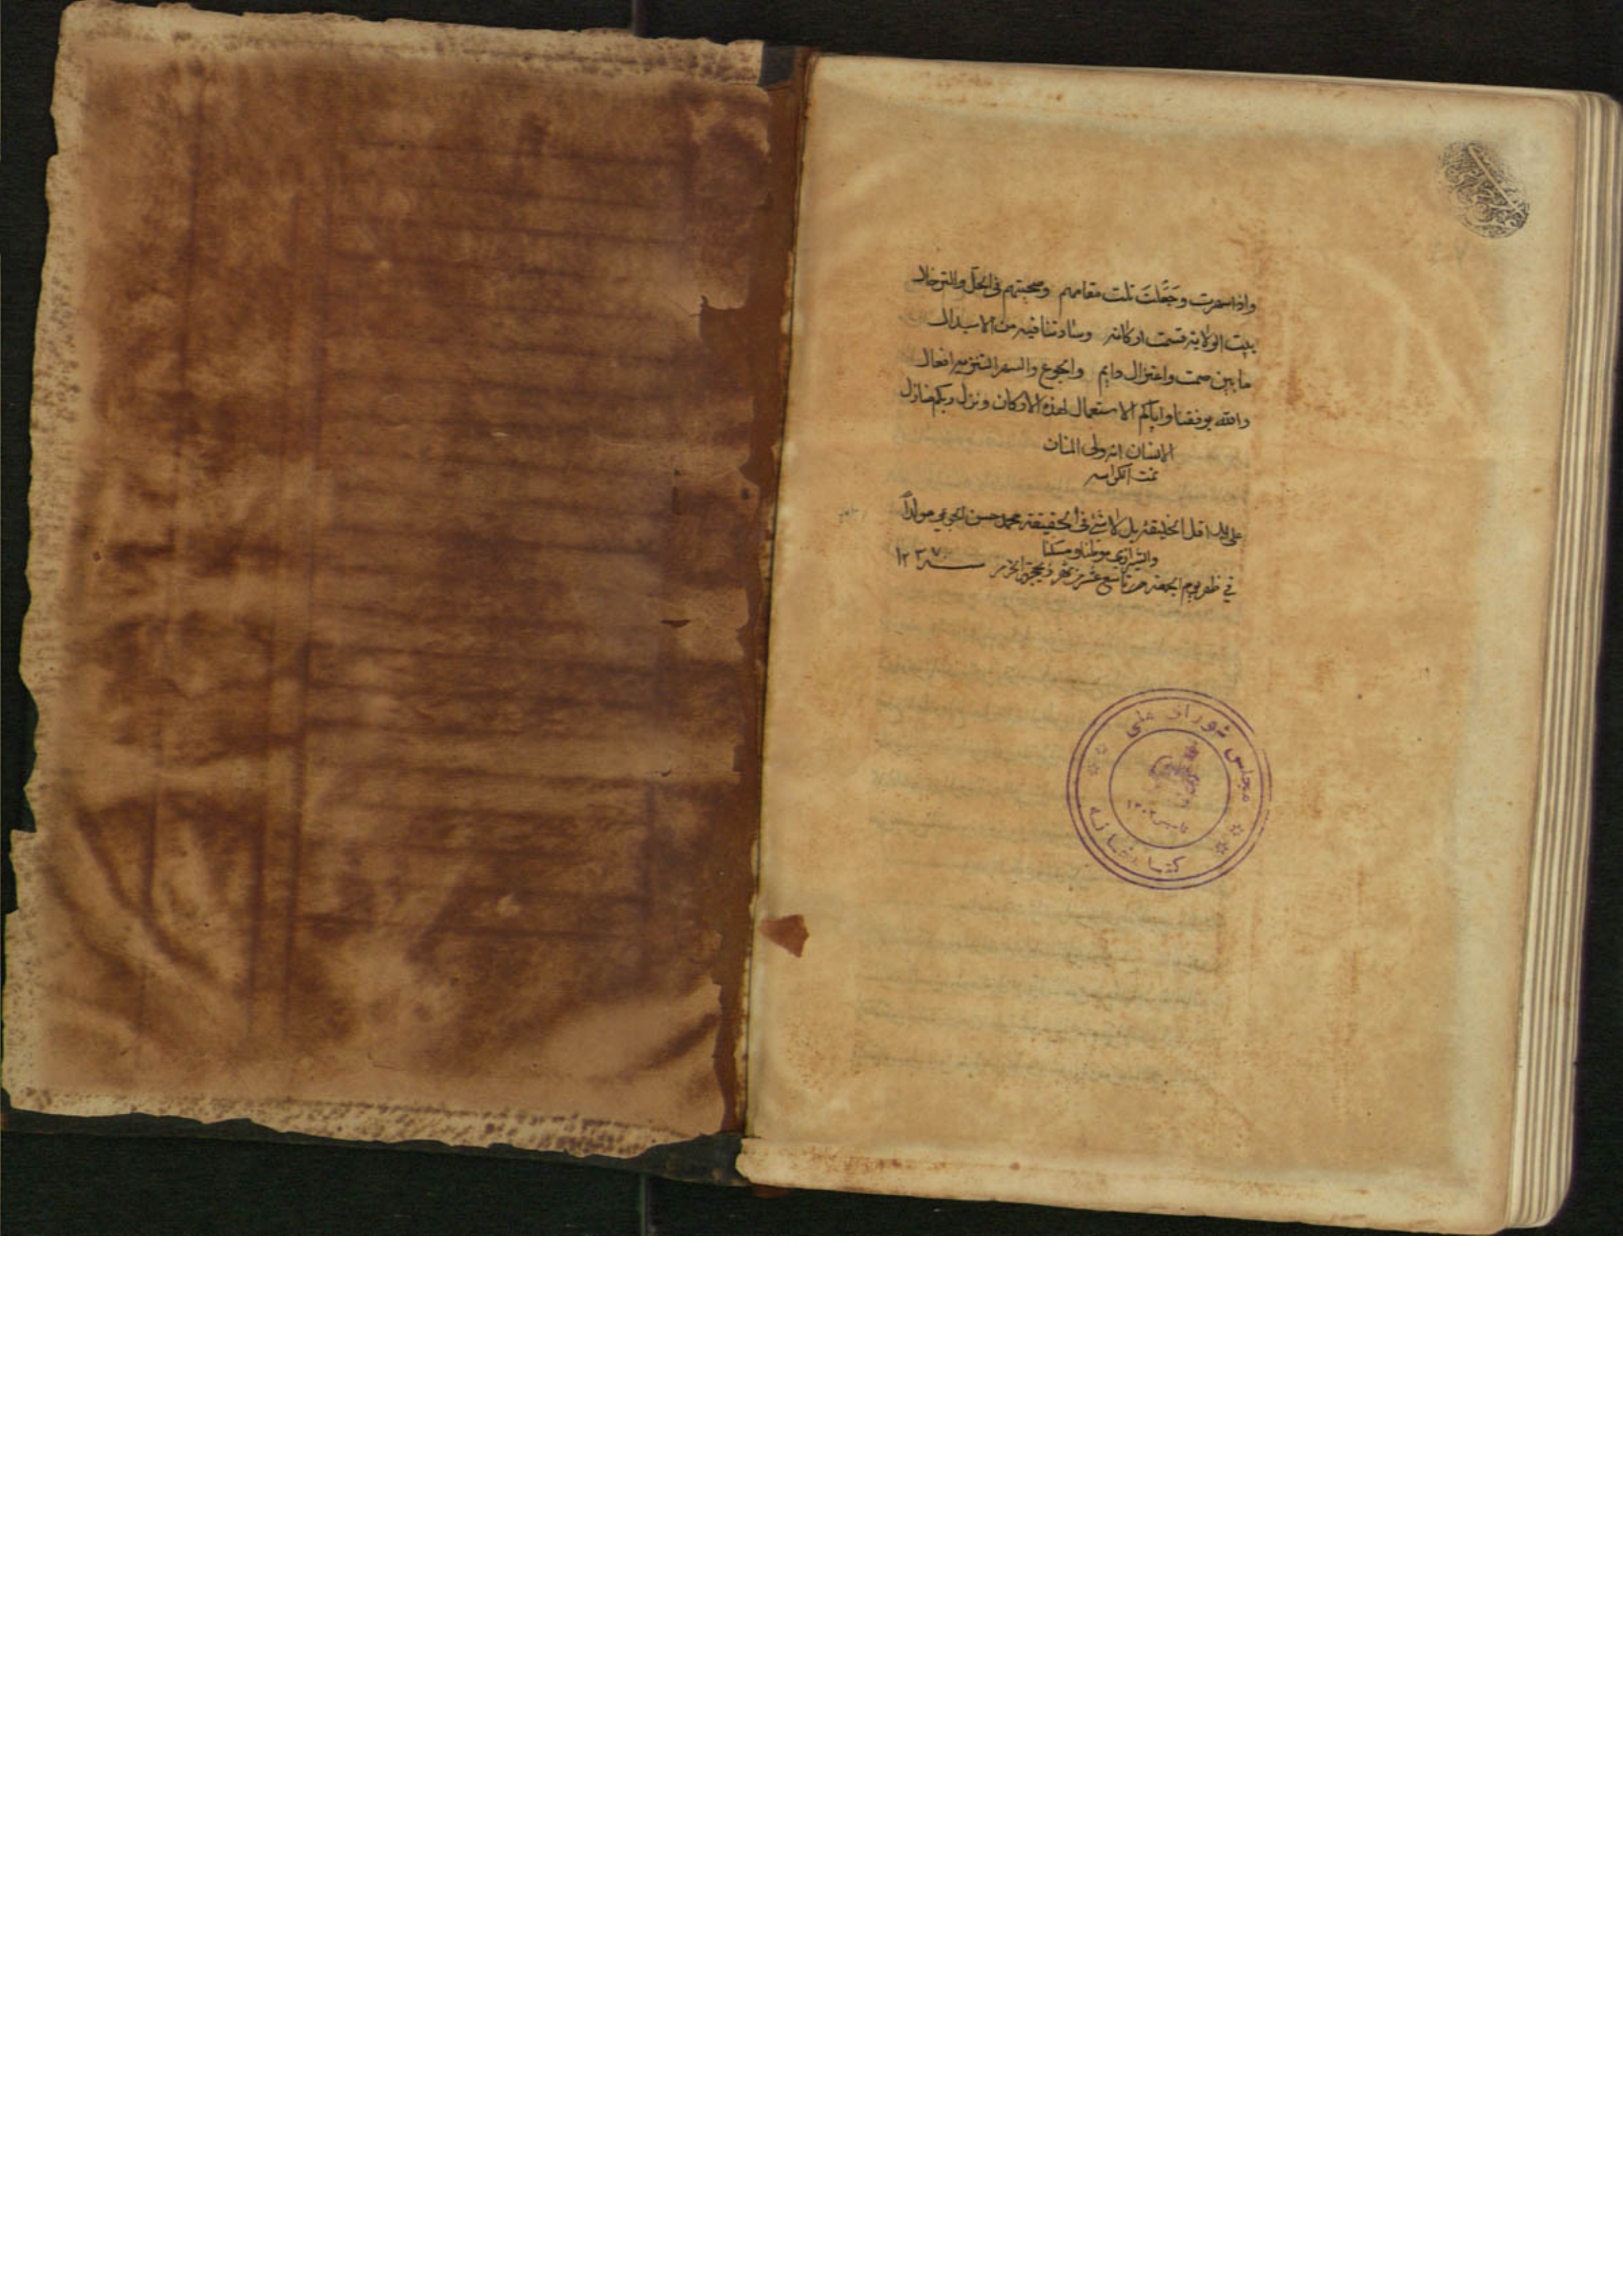 واذا سهرت وجَعَلتَ نلت مقامهم وصحبتهم فی الحلّ والترحال
بیت الولایة قسمت ارکانه وسادتنا فیه من الابدال
ما بین صمت واعتزال دایم والجوع والسهر النزیه العال
والله یوفقنا وایاکم الاستعمال لهذه الارکان ونزل وبکم منازل
الاحسان انه ولی المنان
تمت الکراسه
علی ید اقل الخلیقة بل لا شئ فی الحقیقة محمد حسن مولداً
والشیرازی موطنا ومسکنا
فی ظهر یوم الجمعة تاسع عشر شهر ذیحجة الحرام سنه ۱۲۳۷
مجلس شورای ملی
کتابخانه
تاسیس ۱۳۰۲